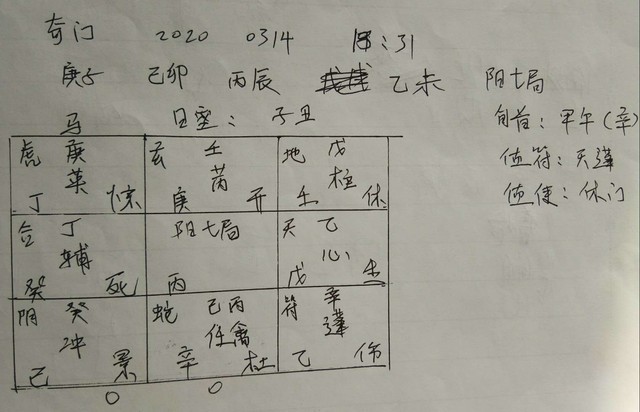 奇门 2020 0314 13:31
庚子 己卯 丙辰 乙未 阳七局
马 日空：子丑 旬首：甲午（辛）
值符：天蓬
值使：休门
虎 庚 英 丁 惊
玄 壬 芮 庚 开
地 戊 柱 壬 休
合 丁 辅 癸 死
阳七局 丙
天 乙 心 戊 生
阴 癸 冲 己 景
蛇 己丙 任禽 辛 杜
符 辛 蓬 乙 伤
O O